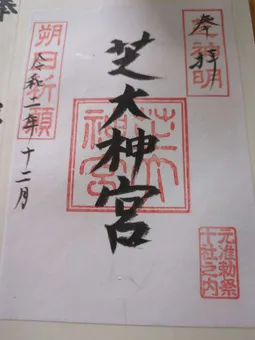 奉拝
芝神明
芝大神宮
芝大神宮
朔日祈願
令和二年十二月
元准勅祭
十社之内